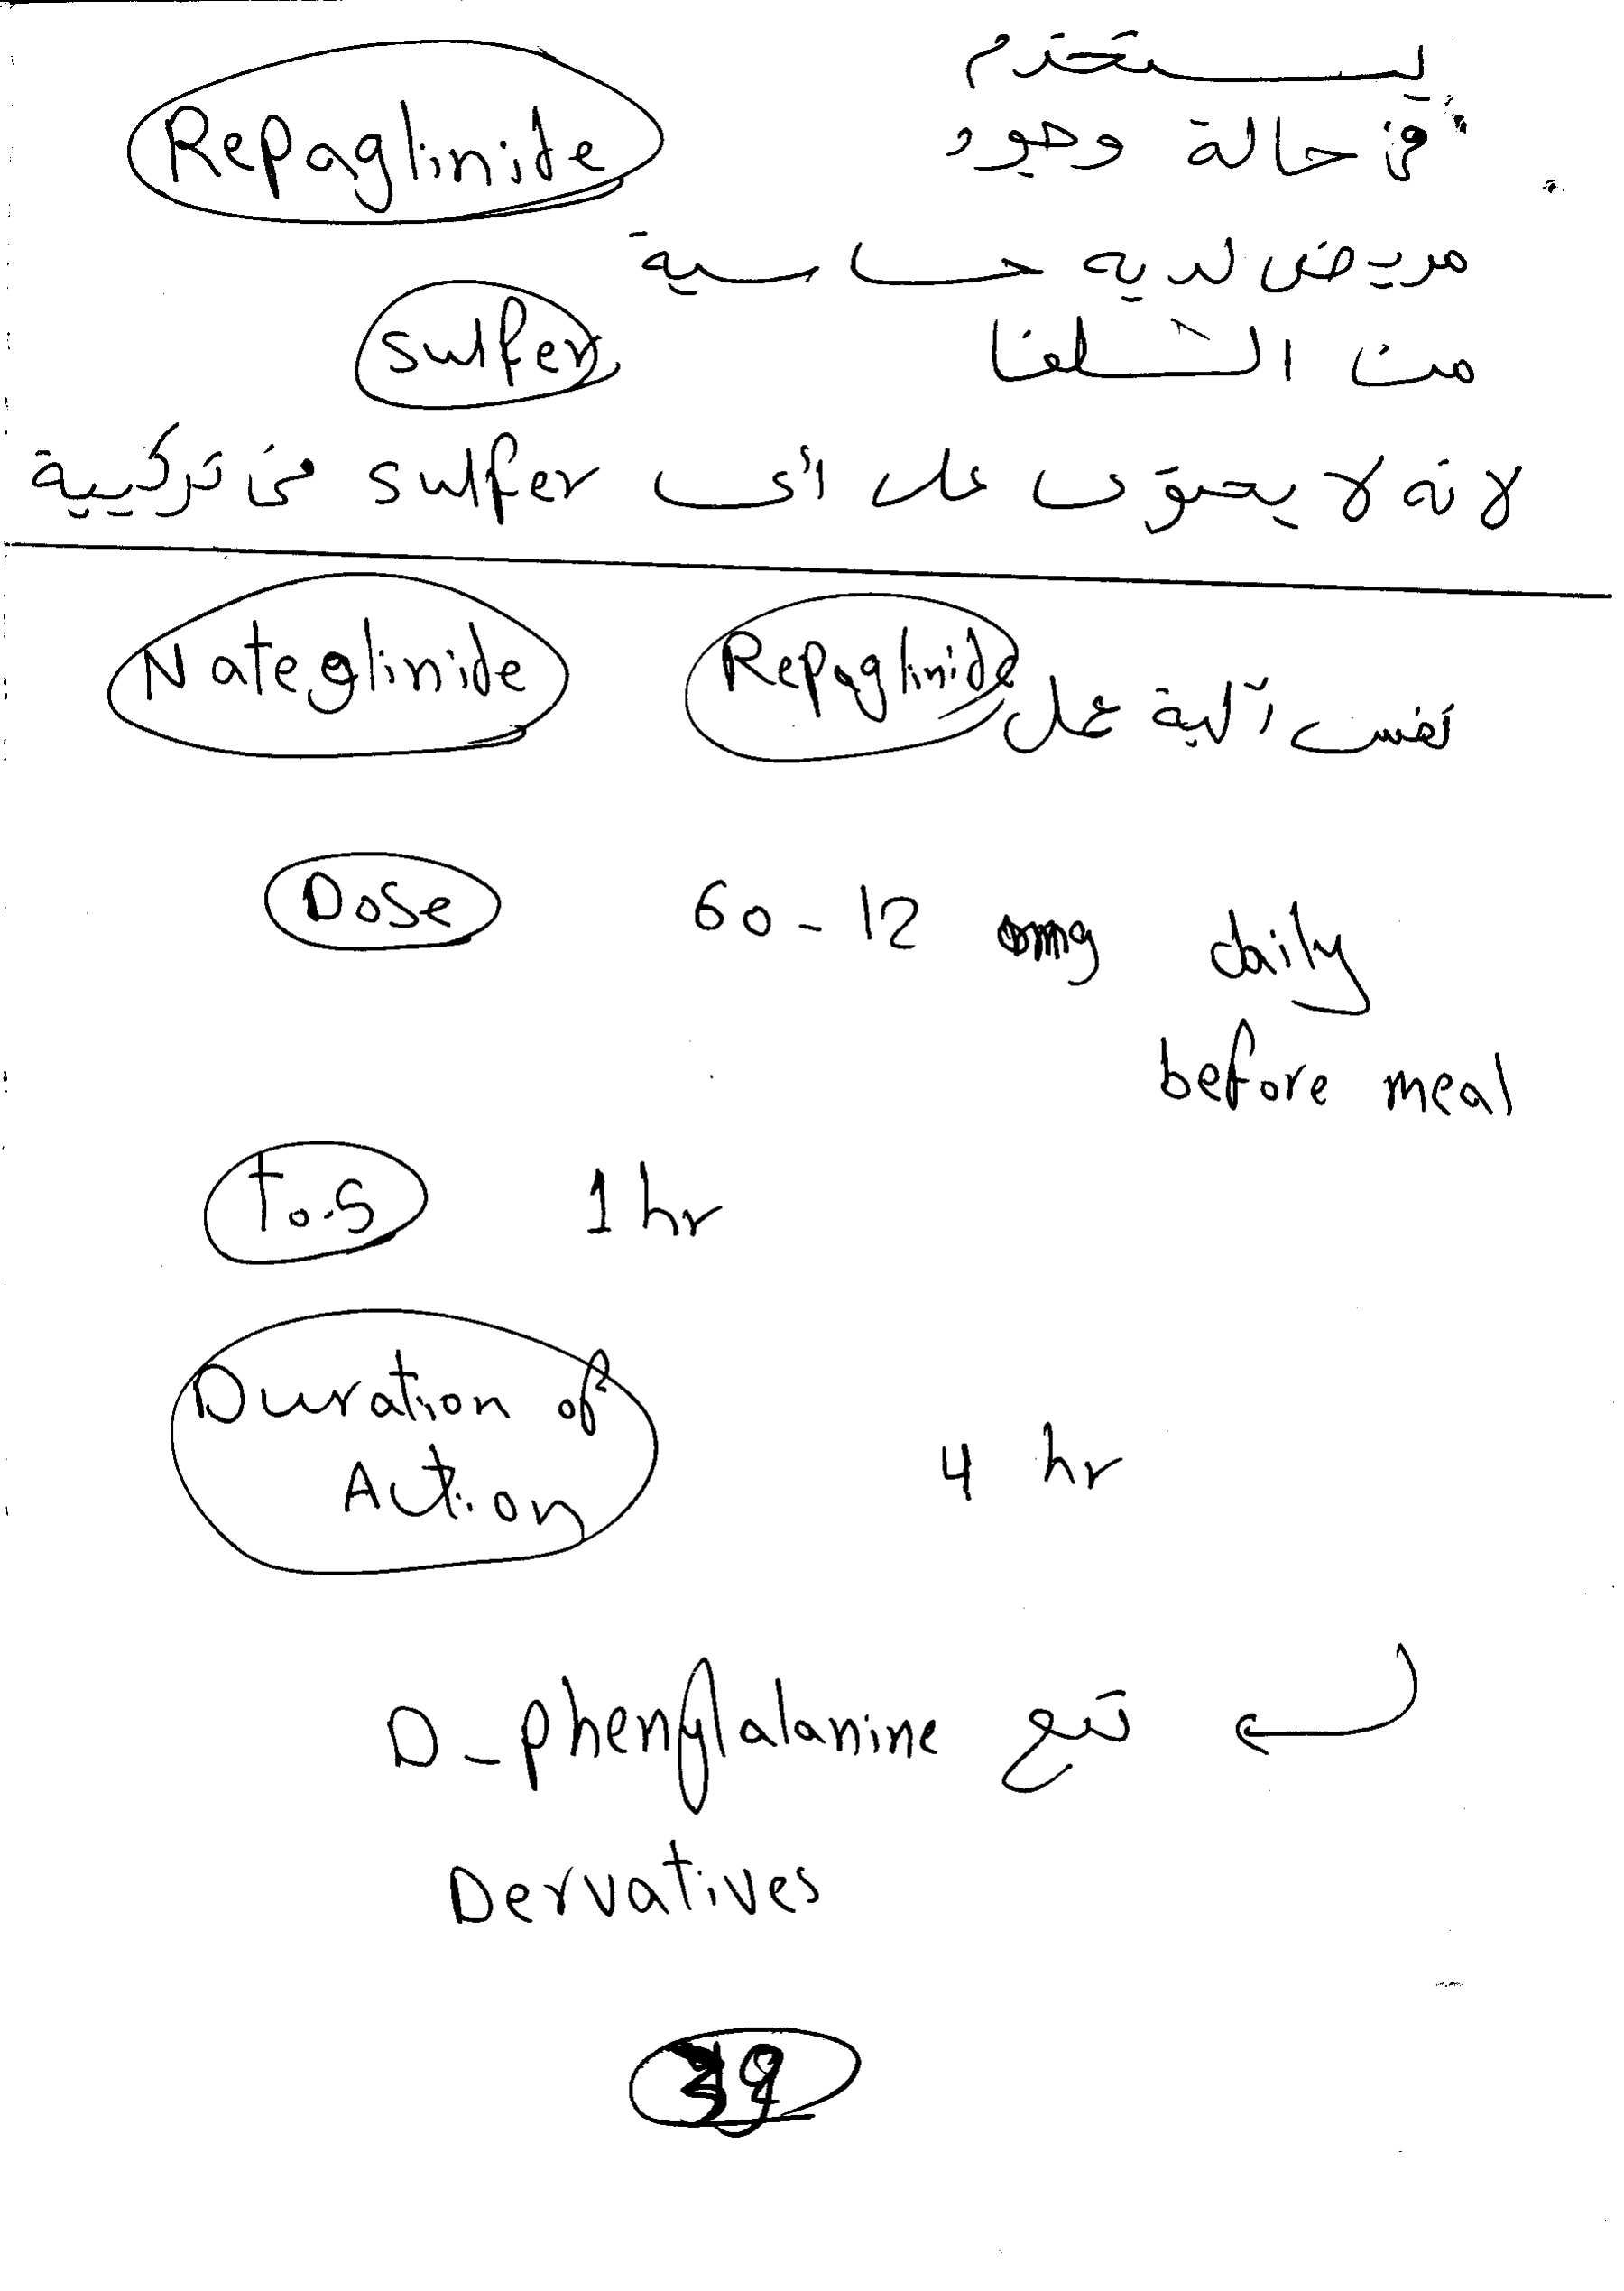 Repaglinide يستخدم
في حالة وجود
مريض لديه حساسية
من السلفا sulfer
لانه لا يحتوى على أى sulfer فى تركيبة
Nateglinide نفس آلية عمل Repaglinide
Dose 60-12 mg daily
before meal
T.o.S 1 hr
Duration of
Action 4 hr
تتبع D-phenylalanine
Dervatives
39